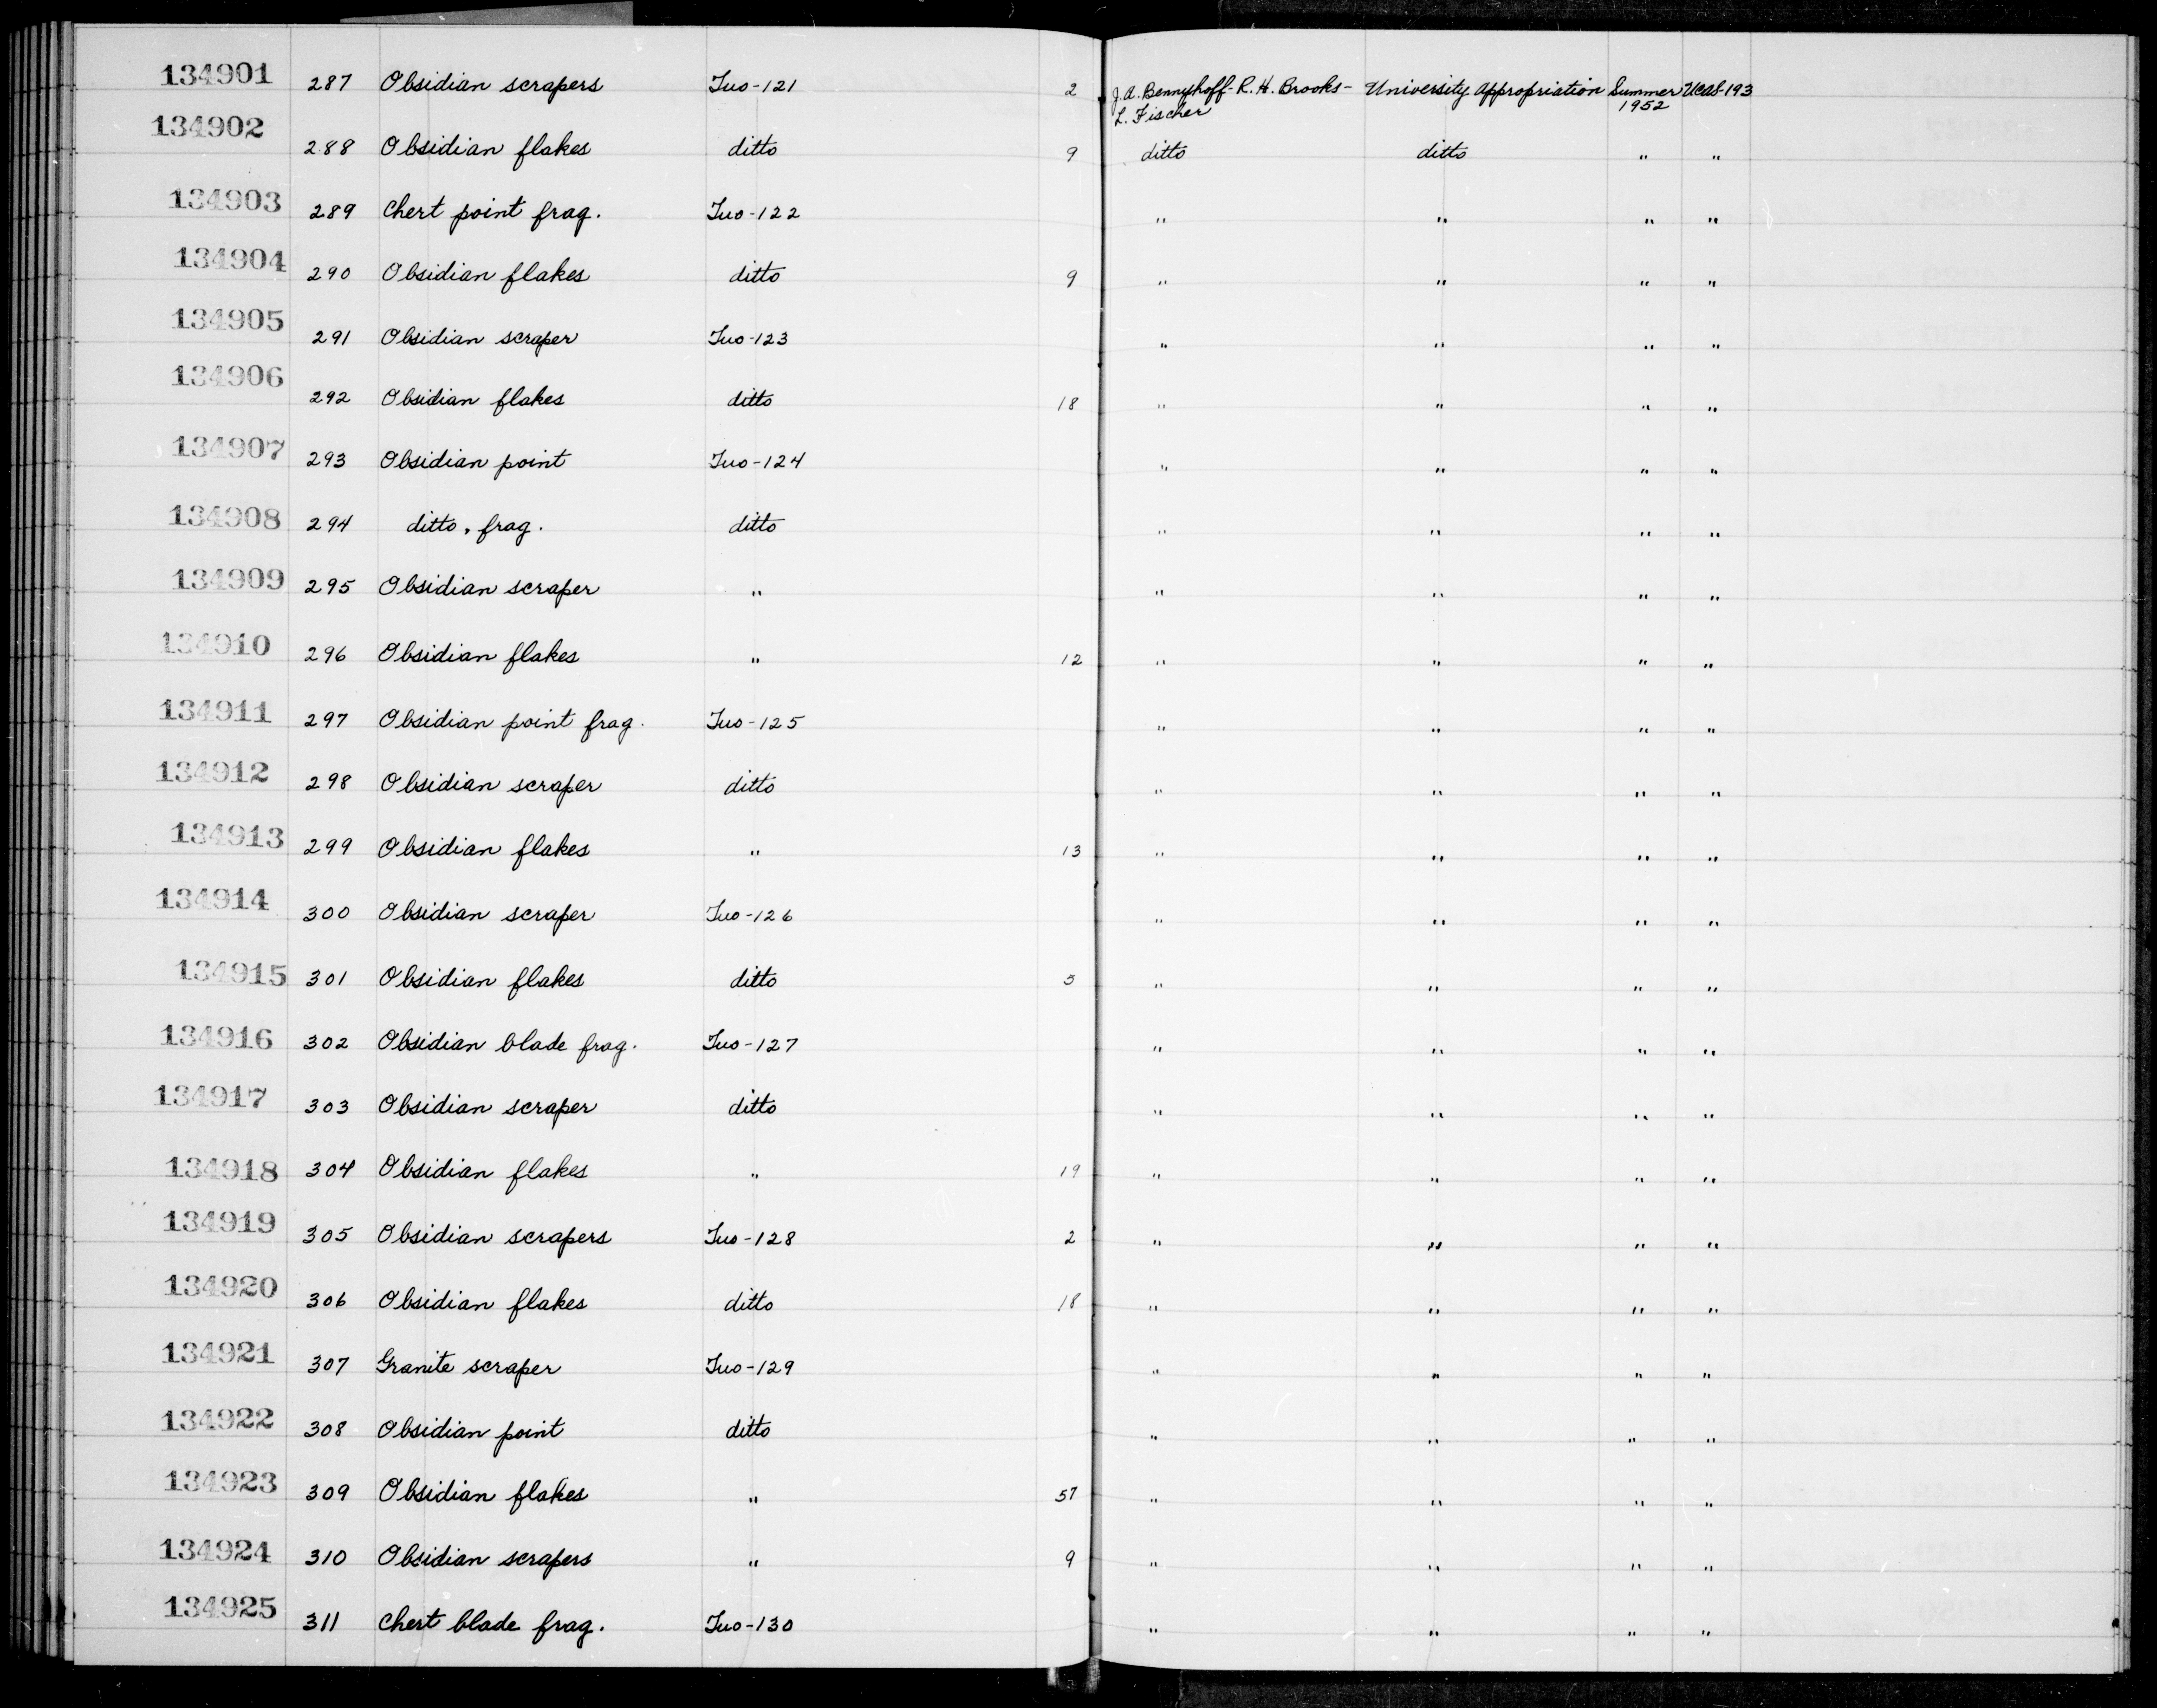 134901 287 Obsidian scrapers Tuo-121 2 J.A. Bennyhoff-R.H. Brooks- University Appropriation Summer UCAS-193
L. Fischer 1952
134902 288 Obsidian flakes ditto 9 ditto ditto " "
134903 289 Chert point frag. Tuo-122 " " " "
134904 290 Obsidian flakes ditto 9 " " " "
134905 291 Obsidian scraper Tuo-123 " " " "
134906 292 Obsidian flakes ditto 18 " " " "
134907 293 Obsidian point Tuo-124 " " " "
134908 294 ditto, frag. ditto " " " "
134909 295 Obsidian scraper " " " " "
134910 296 Obsidian flakes " 12 " " " "
134911 297 Obsidian point frag. Tuo-125 " " " "
134912 298 Obsidian scraper ditto " " " "
134913 299 Obsidian flakes " 13 " " " "
134914 300 Obsidian scraper Tuo-126 " " " "
134915 301 Obsidian flakes ditto 5 " " " "
134916 302 Obsidian blade frag. Tuo-127 " " " "
134917 303 Obsidian scraper ditto " " " "
134918 304 Obsidian flakes " 19 " " " "
134919 305 Obsidian scrapers Tuo-128 2 " " " "
134920 306 Obsidian flakes ditto 18 " " " "
134921 307 Granite scraper Tuo-129 " " " "
134922 308 Obsidian point ditto " " " "
134923 309 Obsidian flakes " 57 " " " "
134924 310 Obsidian scrapers " 9 " " " "
134925 311 Chert blade frag. Tuo-130 " " " "